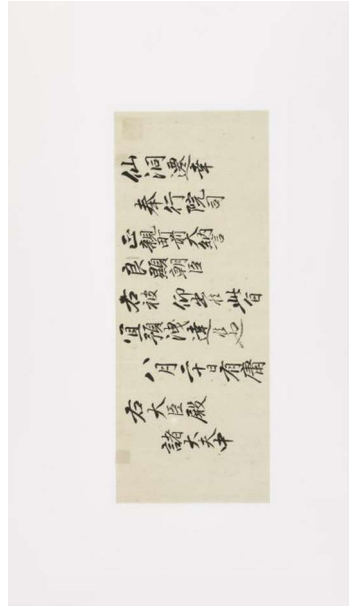 仙洞遷幸
奉行院司
正親町前大納言
良顕朝臣
右被 仰出候此旨
宜預洩達候也
八月二十日有庸
右大臣殿
諸大夫中